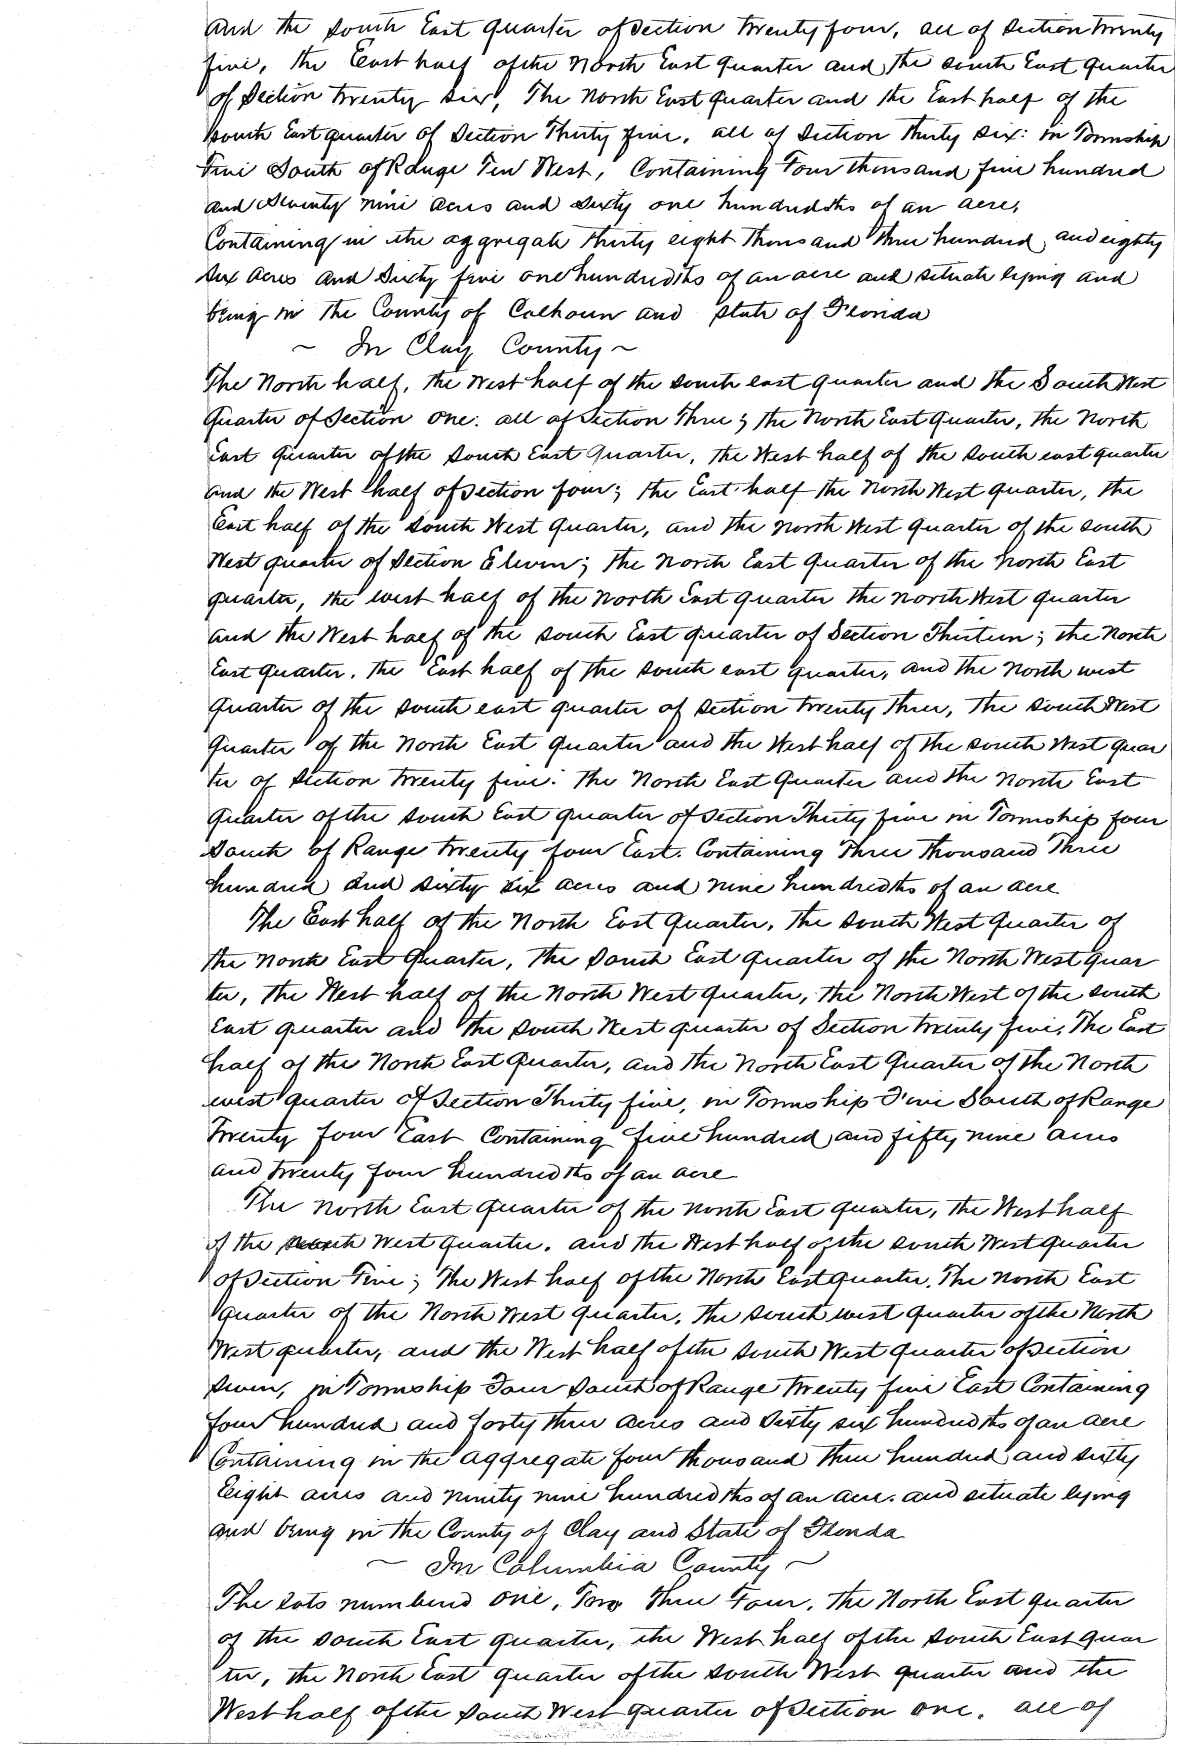 and the South East quarter of Section twenty four, all of Section twenty
five, the East half of the North East quarter and the south East quarter
of Section twenty six, The North East quarter and the East half of the
South East quarter of Section Thirty five, all of Section thirty six: in Township
Five South of Range Ten West, Containing Four thousand five hundred
and Seventy nine acres and sixty one hundredths of an acre,
Containing in the aggregate thirty eight thousand three hundred and eighty
six acres and sixty five one hundredths of an acre and situate lying and
being in the County of Calhoun and State of Florida
~ In Clay County ~
The North half, the West half of the south east quarter and the South West
quarter of Section one: all of Section Three; the North East Quarter, the North
East quarter of the South East Quarter, the West half of the south east quarter
and the West half of Section four; the East half the North West quarter, the
East half of the South West quarter, and the North West quarter of the South
West quarter of Section Eleven; the North East quarter of the North East
quarter, the west half of the North East quarter the North West quarter
and the West half of the South East quarter of Section Thirteen; the North
East quarter, the East half of the south east quarter, and the North west
quarter of the south east quarter of Section twenty three, The South West
quarter of the North East quarter and the West half of the South West quar
ter of Section twenty five: The North East Quarter and the North East
quarter of the South East quarter of Section Thirty five in Township four
South of Range twenty four East. Containing Three thousand Three
hundred and sixty six acres and nine hundredths of an acre
The East half of the North East Quarter, the South West Quarter of
the North East Quarter, The South East quarter of the North West quar
ter, the West half of the North West quarter, the North West of the South
East quarter and the South West quarter of Section twenty five, The East
half of the North East Quarter, and the North East Quarter of the North
west quarter of Section Thirty five, in Township Five South of Range
Twenty four East Containing five hundred and fifty nine acres
and twenty four hundredths of an acre
The North East quarter of the North East quarter, the West half
of the South West quarter, and the West half of the South West quarter
of Section Five; The West half of the North East quarter, The North East
quarter of the North West quarter, the South west quarter of the North
West quarter, and the West half of the South West quarter of Section
Seven, in Township Four South of Range twenty five East Containing
four hundred and forty three acres and sixty six hundredths of an acre
Containing in the aggregate four thousand three hundred and sixty
Eight acres and ninety nine hundredths of an acre, and situate lying
and being in the County of Clay and State of Florida
~ In Columbia County ~
The lots numbered one, Two Three Four, The North East quarter
of the South East quarter, the West half of the South East quar
ter, the North East quarter of the South West quarter and the
West half of the South West quarter of Section one, all of